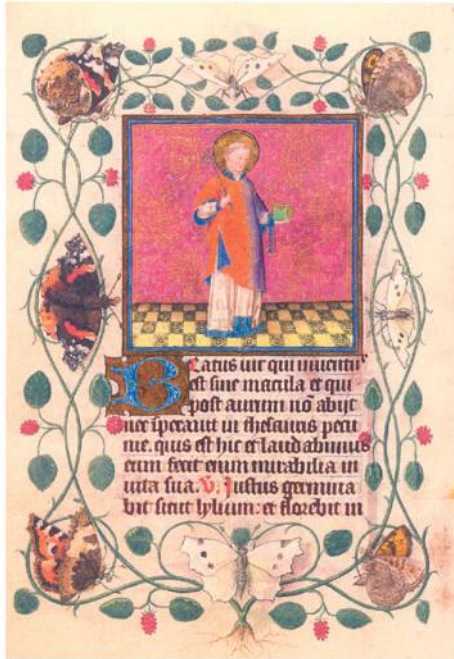 Beatus uir qui inuentus
est sine macula et qui
post aurum nō abijt
nec sperauit in thesauris pecu
nie. quis est hic et laudabimus
eum fecit enim mirabilia in
uita sua. V. Justus germina
bit sicut lylium: et florebit in